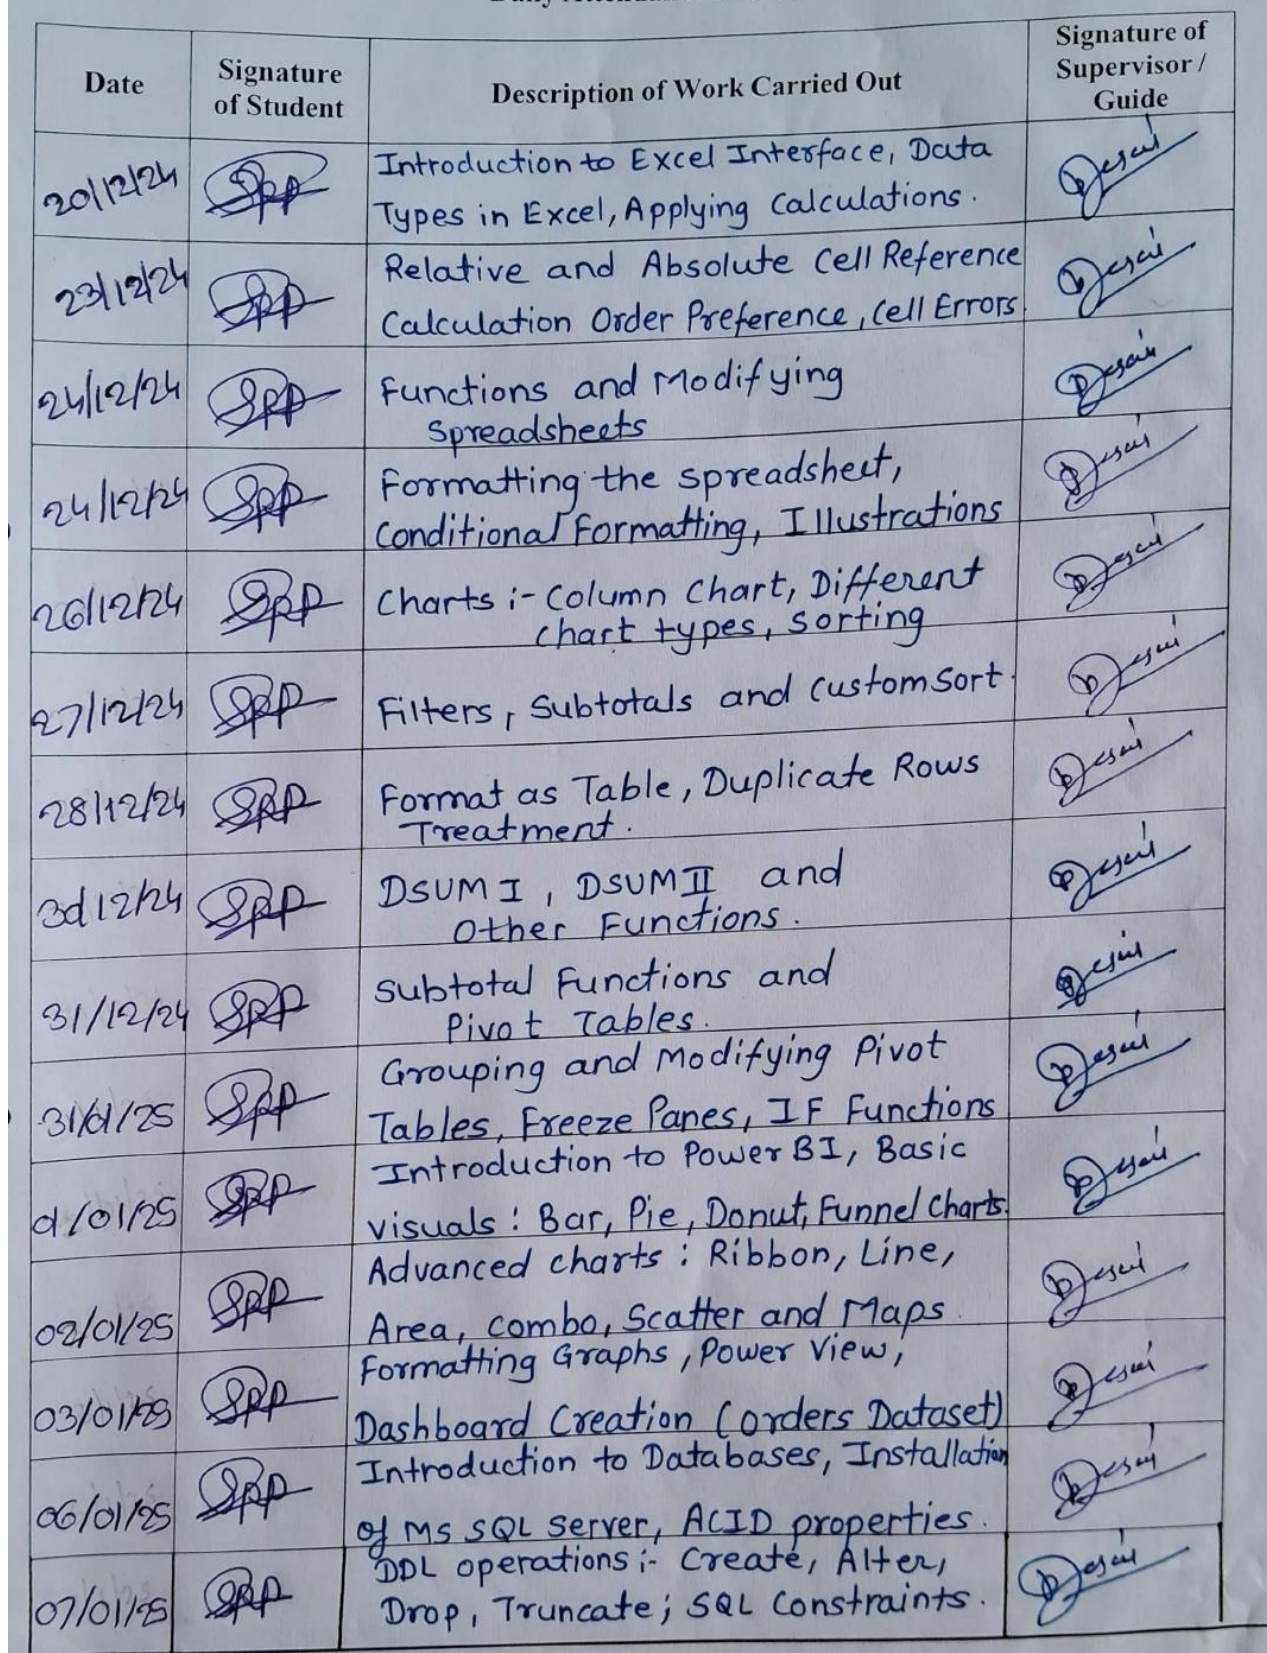 Date
Signature of Student
Description of Work Carried Out
Signature of Supervisor / Guide
20/12/24
Introduction to Excel Interface, Data
Types in Excel, Applying Calculations.
23/12/24
Relative and Absolute Cell Reference
Calculation Order Preference, Cell Errors
24/12/24
Functions and Modifying
Spreadsheets
24/12/24
Formatting the spreadsheet,
Conditional Formatting, Illustrations
26/12/24
Charts :- Column Chart, Different
chart types, sorting
27/12/24
Filters, Subtotals and custom Sort.
28/12/24
Format as Table, Duplicate Rows
Treatment.
30/12/24
DSUM I, DSUM II and
Other Functions.
31/12/24
Subtotal Functions and
Pivot Tables.
31/01/25
Grouping and Modifying Pivot
Tables, Freeze Panes, IF Functions
01/01/25
Introduction to Power BI, Basic
visuals : Bar, Pie, Donut, Funnel Charts.
02/01/25
Advanced charts : Ribbon, Line,
Area, combo, Scatter and Maps.
03/01/25
Formatting Graphs, Power View,
Dashboard Creation (orders Dataset)
06/01/25
Introduction to Databases, Installation
of MS SQL Server, ACID properties.
07/01/25
DDL operations :- Create, Alter,
Drop, Truncate; SQL Constraints.